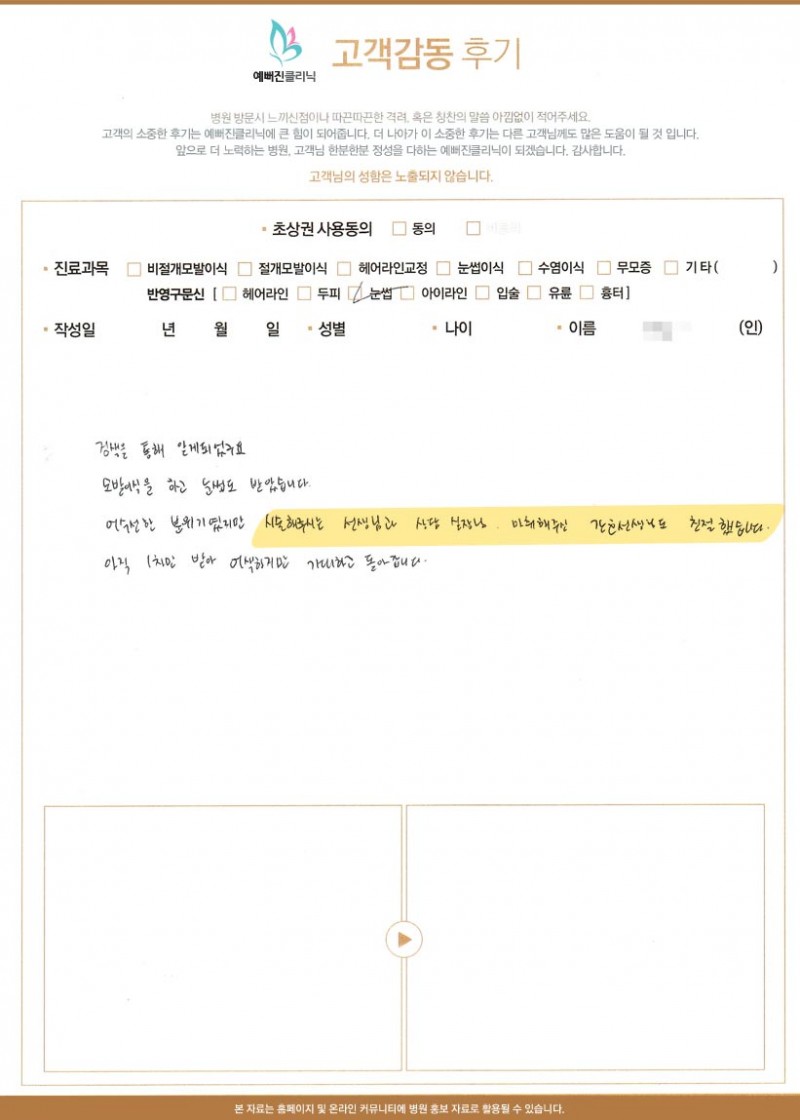 예뻐진클리닉
고객감동 후기
병원 방문시 느끼신점이나 따끈따끈한 격려, 혹은 칭찬의 말씀 아낌없이 적어주세요.
고객의 소중한 후기는 예뻐진클리닉에 큰 힘이 되어줍니다. 더 나아가 이 소중한 후기는 다른 고객님께도 많은 도움이 될 것 입니다.
앞으로 더 노력하는 병원, 고객님 한분한분 정성을 다하는 예뻐진클리닉이 되겠습니다. 감사합니다.
고객님의 성함은 노출되지 않습니다.
초상권 사용동의 동의
진료과목 비절개모발이식 절개모발이식 헤어라인교정 눈썹이식 수염이식 무모증 기타( )
반영구문신 [ 헤어라인 두피 눈썹 아이라인 입술 유륜 흉터 ]
작성일 년 월 일 성별 나이 이름 (인)
검색을 통해 알게되었구요
모발이식을 하고 눈썹도 받았습니다.
어수선한 분위기였지만 시술해주시는 선생님과 상담 실장님. 마취해주신 간호선생님도 친절했습니다.
아직 1차만 받아 어색하지만 기대하고 돌아갑니다.
본 자료는 홈페이지 및 온라인 커뮤니티에 병원 홍보 자료로 활용될 수 있습니다.